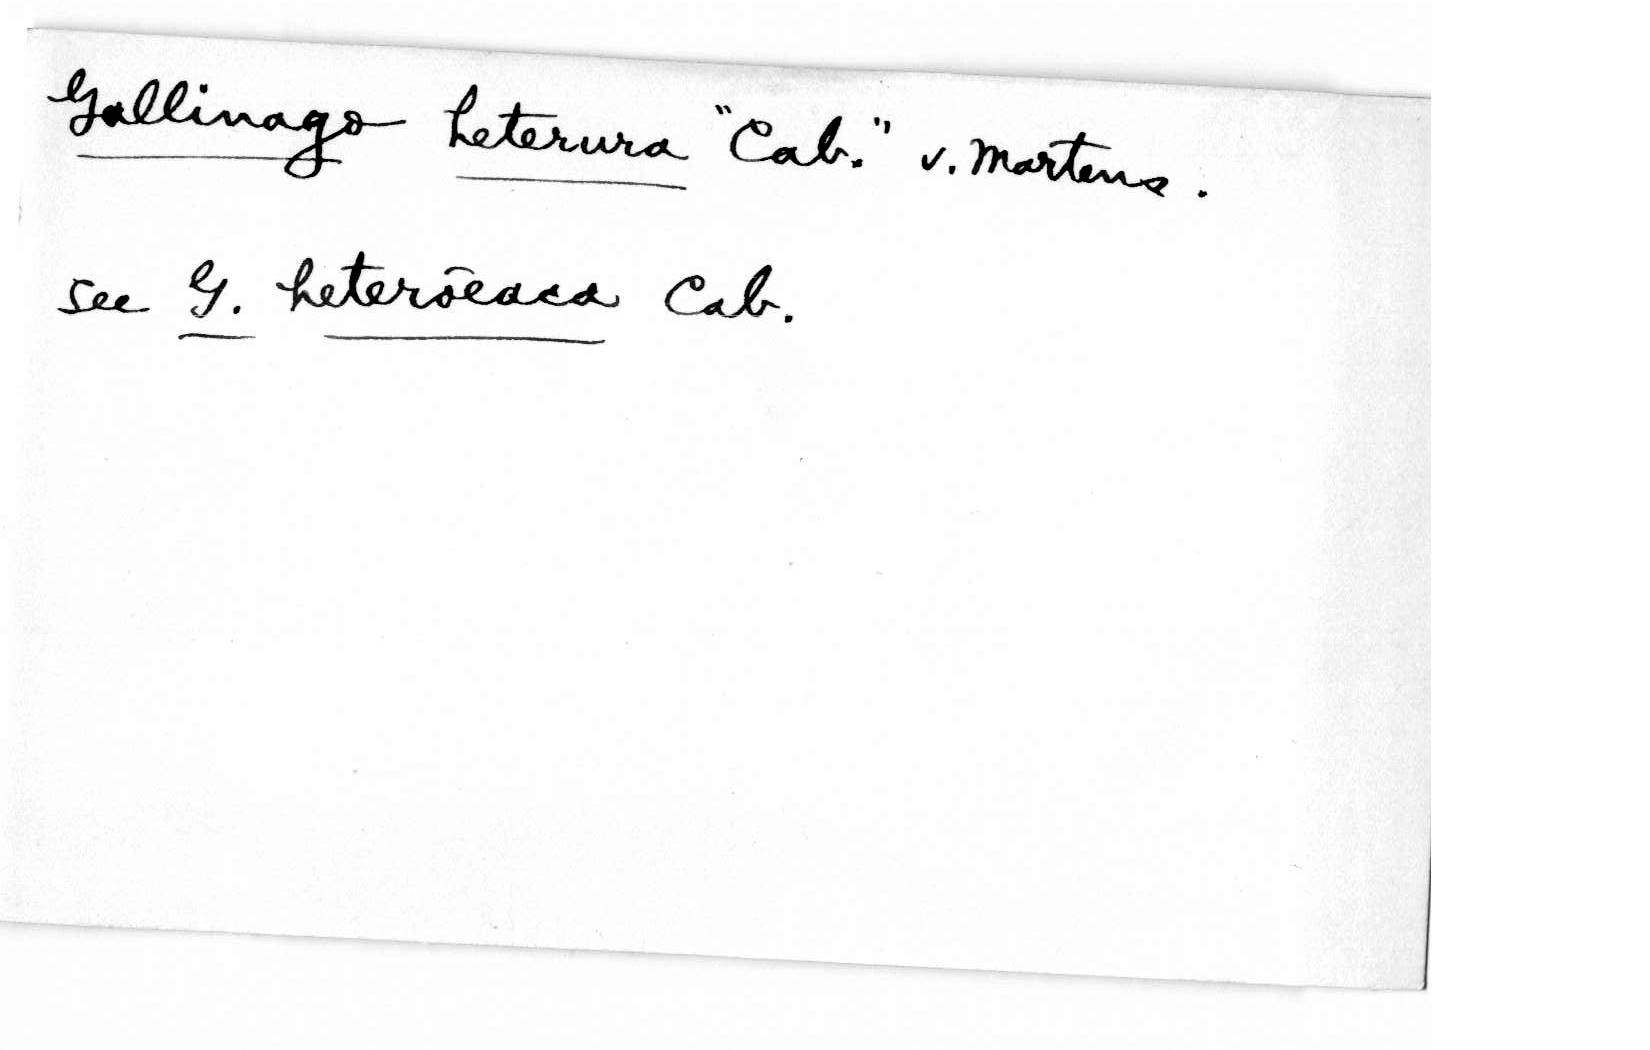 Gallinago heterura "Cab." v. Martens.
see G. heterōcaca Cab.